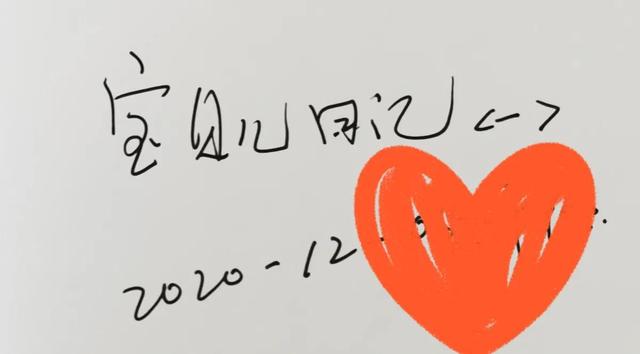 宝贝儿日记<一>
2020-12